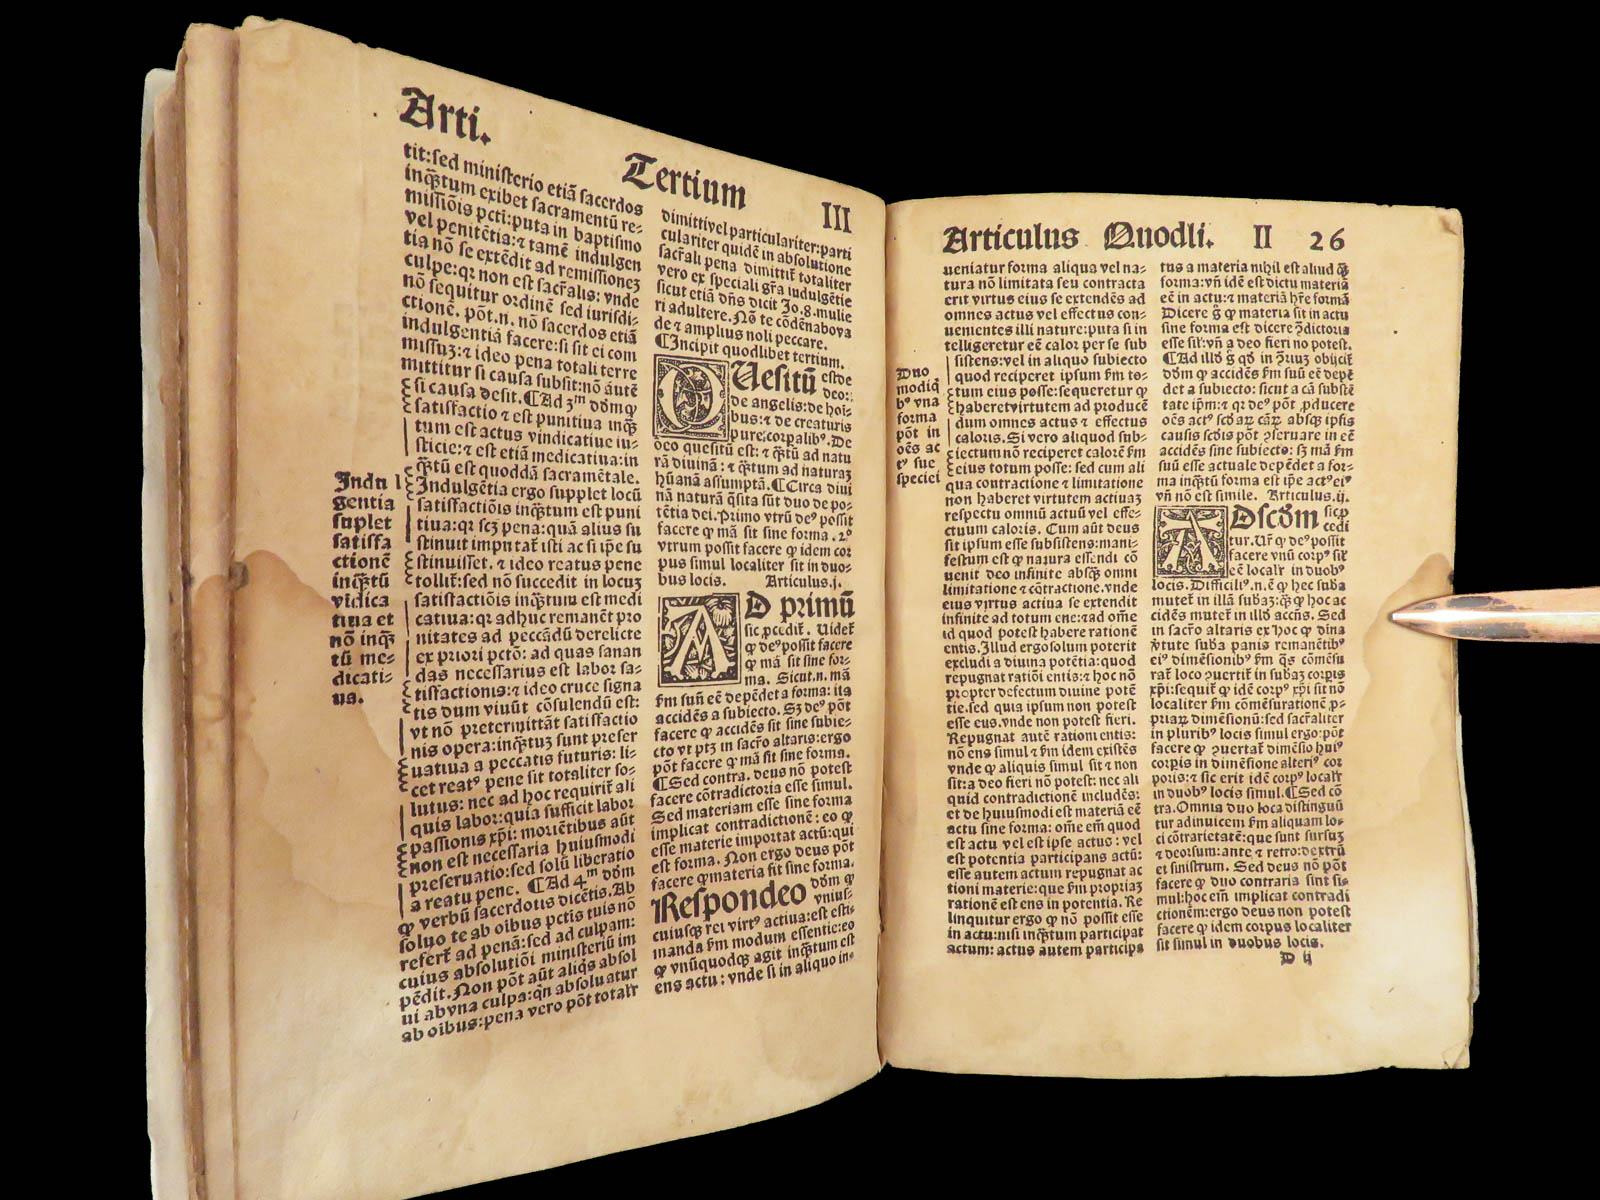 Arti.
Tertium
III
tit:sed ministerio etiã sacerdos
inq̃ʒtum exibet sacramentũ re-
missiõis pcti:puta in baptismo
vel penitẽtia:⁊ tamẽ indulgen
tia nõ se extẽdit ad remissionez
culpe:qꝛ non est sacr̃alis: vnde
nõ sequitur ordinẽ sed iurisdi-
ctionẽ. põt.n. nõ sacerdos etiã
indulgentiã facere:si sit ei com
missuʒ:⁊ ideo pena totali terre
mittitur si causa subsit:nõ autẽ
si causa desit. ¶Ad 3ᵐ dõm ꝙ
satisfactio ⁊ est punitiua inq̃ʒ
tum est actus vindicatiue iu-
sticie:⁊ est etiã medicatiua:in
q̃ʒtũ est quoddã sacramẽtale.
Indulgẽtia ergo supplet locũ
satisfactiõis inq̃ʒtum est puni
tiua:qꝛ scʒ pena:quã alius su
stinuit imputat᷑ isti ac si ip̃e su
stinuisset. ⁊ ideo reatus pene
tollit᷑:sed nõ succedit in locuʒ
satisfactiõis inq̃ʒtum est medi
catiua:qꝛ adhuc remanẽt pro
nitates ad peccãdũ derelicte
ex priori pctõ: ad quas sanan
das necessarius est labor sa-
tisfactionis:⁊ ideo cruce signa
tis dum viuũt cõsulendũ est:
vt nõ pretermittãt satisfactio
nis opera:inq̃ʒtuʒ sunt preser
uatiua a peccatis futuris: li-
cet reatꝰ pene sit totaliter so-
lutus: nec ad hoc requirit᷑ ali
quis labor:quia sufficit labor
passionis xp̃i: moriẽtibus aũt
non est necessaria huiusmodi
preseruatio:sed solũ liberatio
a reatu pene. ¶Ad 4ᵐ dõm
ꝙ verbũ sacerdotis dicẽtis. Ab
soluo te ab oibus pctis tuis nõ
refert᷑ ad penã:sed ad culpam:
cuius absolutiõi ministeriũ im
pẽdit. Non põt aũt aliq̃s absol
ui ab vna culpa:q̃n absoluatur
ab oibus:pena vero põt totalr̃
Indu
gentia
suplet
satisfa
ctionẽ
inq̃ʒtũ
vidica
tiua et
nõ inq̃ʒ
tũ me-
dicati-
ua.
dimitti vel particulariter:parti
culariter quidẽ in absolutione
sacr̃ali pena dimittit᷑ totaliter
vero ex speciali gr̃a iudulgẽtie
sicut etiã dñs dicit Jo.8.mulie
ri adultere. Nõ te cõdẽnabo va
de ⁊ amplius noli peccare.
¶Incipit quodlibet tertium.
QUesitũ est de
deo:
de angelis:de hoi-
bus:⁊ de creaturis
pure corpalibꝰ. De
deo quesitũ est: ⁊ q̃ʒtũ ad natu
rã diuinã: ⁊ q̃ʒtum ad naturaʒ
hũanã assumptã. ¶Circa diui
nã naturã q̃sita sũt duo de po-
tẽtia dei. Primo vtrũ deꝰ possit
facere ꝙ mã sit sine forma. 2º
vtrum possit facere ꝙ idem cor
pus simul localiter sit in duo-
bus locis. Articulus.j.
AD primũ
sic ꝓcedit᷑. Uidet᷑
ꝙ deꝰ possit facere
ꝙ mã sit sine for-
ma. Sicut.n. mã
fm suũ eẽ depẽdet a forma: ita
accidẽs a subiecto. Sʒ deꝰ põt
facere ꝙ accidẽs sit sine subie-
cto vt ptʒ in sacr̃o altaris:ergo
põt facere ꝙ mã sit sine forma.
¶Sed contra. deus nõ potest
facere cõtradictoria esse simul.
Sed materiam esse sine forma
implicat contradictionẽ: eo ꝙ
esse materie importat actũ:qui
est forma. Non ergo deus põt
facere ꝙ materia sit sine forma.
Respondeo dõm ꝙ
vnius-
cuiusqʒ rei virtꝰ actiua:est esti-
manda fm modum essentie:eo
ꝙ vnũquodqʒ agit inq̃ʒtum est
ens actu: vnde si in aliquo in-
Articulus Quodli. II 26
ueniatur forma aliqua vel na-
tura nõ limitata seu contracta
erit virtus eius se extendẽs ad
omnes actus vel effectus con-
uenientes illi nature:puta si in
telligeretur eẽ calor per se sub
sistens:vel in aliquo subiecto
quod reciperet ipsum fm to-
tum eius posse: sequeretur ꝙ
haberet virtutem ad producẽ
dum omnes actus ⁊ effectus
caloris. Si vero aliquod sub-
iectum nõ reciperet calorẽ fm
eius totum posse: sed cum ali
qua contractione ⁊ limitatione
non haberet virtutem actiuaʒ
respectu omniũ actuũ vel effe-
ctuum caloris. Cum aũt deus
sit ipsum esse subsistens:mani-
festum est ꝙ natura essendi cõ
uenit deo infinite absqʒ omni
limitatione ⁊ cõtractione.vnde
eius virtus actiua se extendit
infinite ad totum ens:⁊ ad om̃e
id quod potest habere rationẽ
entis. Illud ergo solum poterit
excludi a diuina potẽtia: quod
repugnat ratiõi entis:⁊ hoc nõ
propter defectum diuine potẽ
tie.sed quia ipsum non potest
esse ens.vnde non potest fieri.
Repugnat autẽ rationi entis:
nõ ens simul ⁊ fm idem existẽs
vnde ꝙ aliquis simul sit ⁊ non
sit:a deo fieri nõ potest: nec ali
quid contradictionẽ includẽs:
et de huiusmodi est materiã eẽ
actu sine forma: om̃e em̃ quod
est actu vel est ipse actus : vel
est potentia participans actũ:
esse autem actum repugnat ac
tioni materie:que fm propriaʒ
rationẽ est ens in potentia. Re
linquitur ergo ꝙ nõ possit esse
in actu:nisi inq̃ʒtum participat
actum: actus autem participa
Duo
modiq̃
hꝰ vna
forma
põt in
oẽs ac
tꝰ sue
speciei
tus a materia nihil est aliud q̃ʒ
forma:vñ idẽ est dictu materiã
eẽ in actu:⁊ materiã hr̃e formã
Dicere g̃ ꝙ materia sit in actu
sine forma est dicere ꝯ̃dictoria
esse sil᷑:vñ a deo fieri no potest.
¶Ad illð g̃ qð in ꝯ̃riuʒ obijcit᷑
dõm ꝙ accidẽs fm suũ eẽ depẽ
det a subiecto: sicut a cã substẽ
tate ip̃m:⁊ qꝛ deꝰ põt ꝓducere
oẽs actꝰ scðaꝝ cãꝝ absqʒ ipsis
causis scðis põt ꝯseruare in eẽ
accidẽs sine subiecto: sʒ mã fm
suũ esse actuale depẽdet a for-
ma inq̃ʒtũ forma est ip̃e actꝰ eiꝰ
vñ nõ est simile. Articulus.ij.
AD scðm sic ꝓ
cedi
tur. Ur̃ ꝙ deꝰ possit
facere vnũ corpꝰ sil᷑
eẽ localr̃ in duobꝰ
locis. Difficiliꝰ.n.ẽ ꝙ hec suba
mutet᷑ in illã subaʒ:q̃ʒ ꝙ hoc ac
cidẽs mutet᷑ in illð accñs. Sed
in sacr̃o altaris ex hoc ꝙ diña
v̾tute suba panis remanẽtibꝰ
eiꝰ dimẽsionibꝰ fm q̃s cõmẽsu
rat᷑ loco ꝯuertit᷑ in subaʒ corpis
xp̃i:sequit᷑ ꝙ idẽ corpꝰ xp̃i sit nõ
localiter fm cõmẽsurationẽ p-
priaꝝ dimẽsionũ:sed sacr̃aliter
in pluribꝰ locis simul ergo:põt
facere ꝙ ꝯuertat᷑ dimẽsio huiꝰ
corpis in dimẽsione alteriꝰ cor
poris:⁊ sic erit idẽ corpꝰ localr̃
in duobꝰ locis simul. ¶Sed cõ
tra. Omnia duo loca distinguũ
tur adinuicem fm aliquam lo-
ci cõtrarietatẽ: que sunt sursuʒ
⁊ deorsum: ante ⁊ retro:dextrũ
et sinistrum. Sed deus nõ põt
facere ꝙ duo contraria sint si-
mul:hoc em̃ implicat contradi
ctionẽm:ergo deus non potest
facere ꝙ idem corpus localiter
sit simul in duobus locis.
D ij